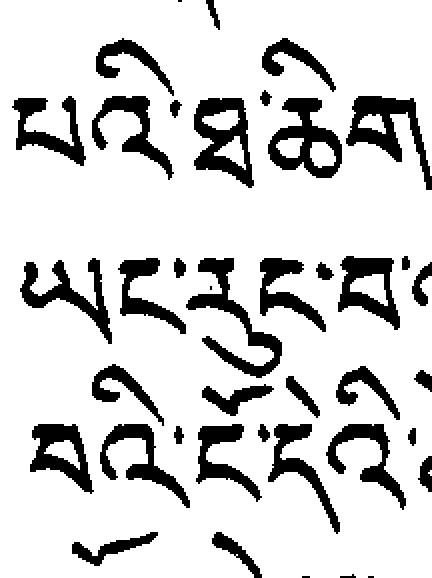 པའི་ཐ་ཆིག
ཡང་རུང་བ་
བའི་ངོ་དེའི་